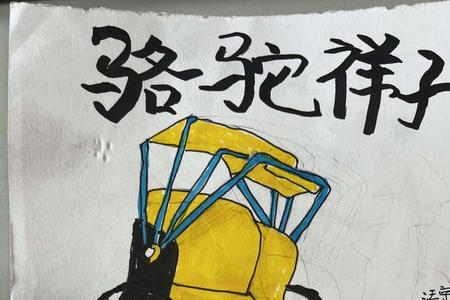 骆驼祥子